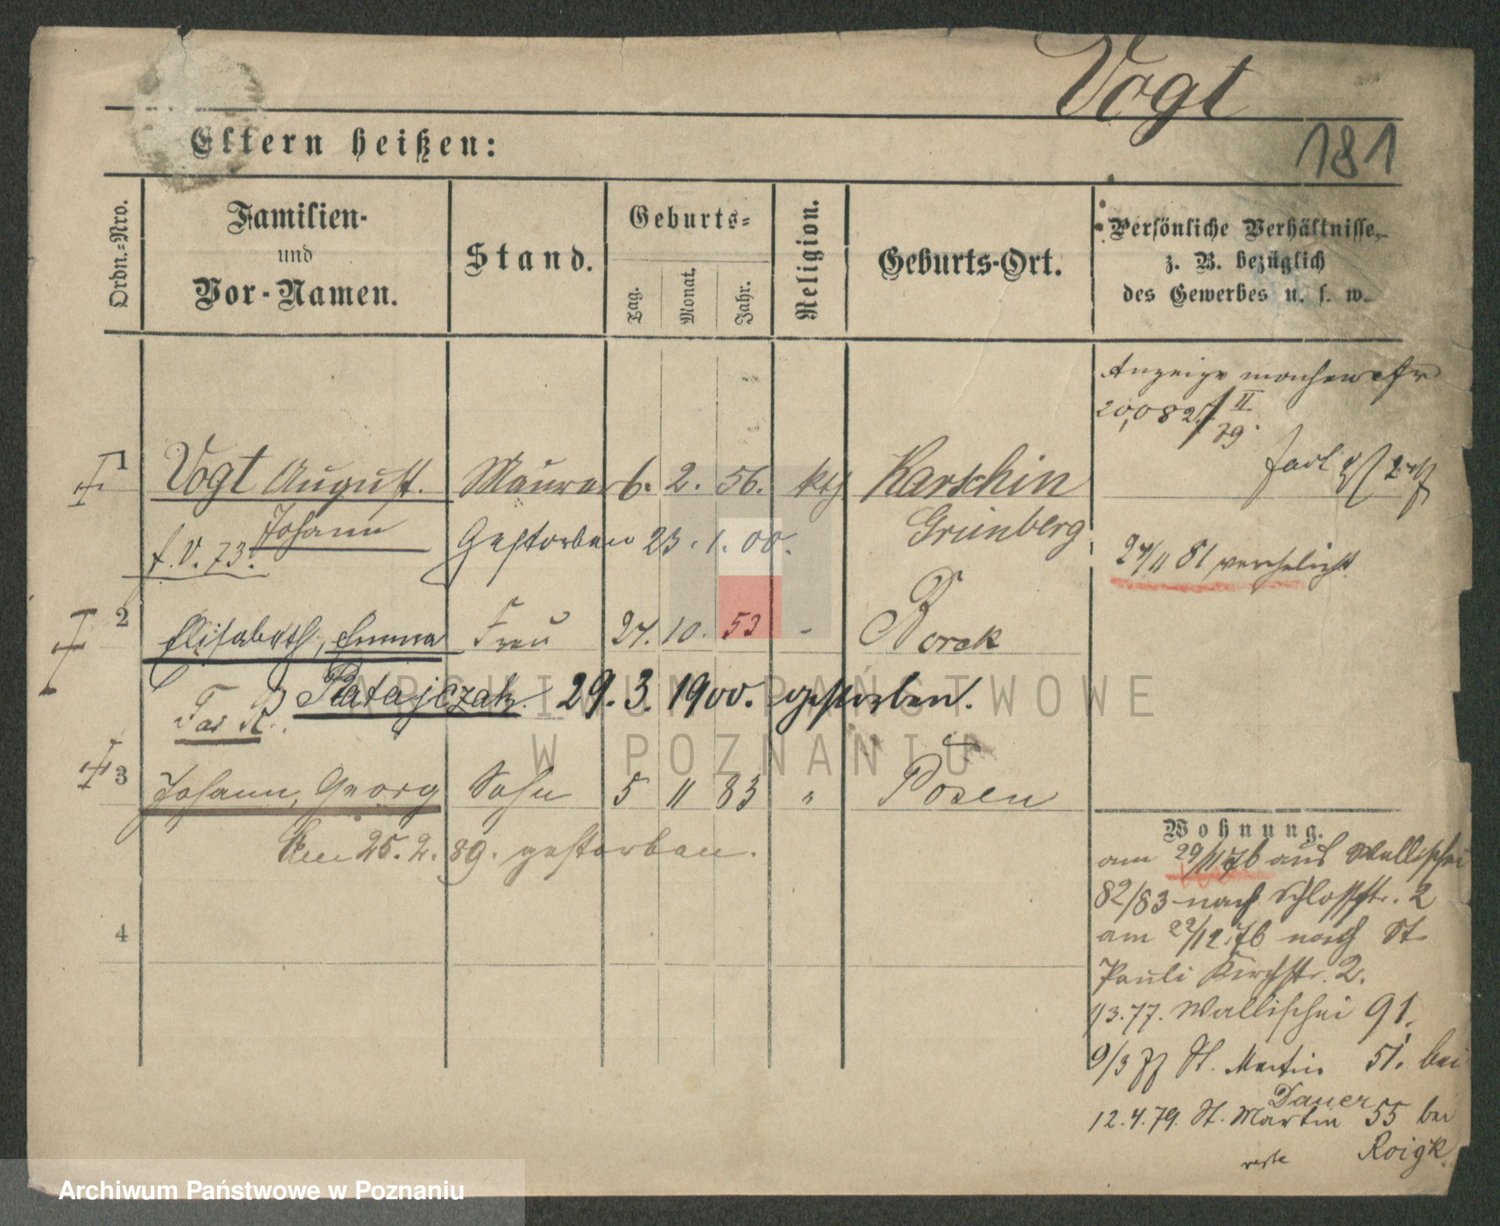 Vogt
181
Eltern heißen:
Ordn.-Nro.
Familien-
und
Vor-Namen.
Stand.
Geburts-
Tag.
Monat.
Jahr.
Religion.
Geburts-Ort.
Persönliche Verhältnisse,
z. B. bezüglich
des Gewerbes u. s. w.
Anzeige
II
79.
1 Vogt August. Maurer 6. 2. 56. kth Karschin
Johann Gestorben 23. 1. 00. Grünberg
f. V. 73.
27/11 81 verehelicht
2 Elisabeth, Emma Frau 24. 10. 53 - Borek
Ratajczak. 29. 3. 1900. gestorben.
3 Johann, Georg Sohn 5 11 83 " Posen
Am 25. 2. 89. gestorben.
4
Wohnung.
am 29/11 76 aus Wallischei
82/83 nach Schloßstr. 2
am 22/12 76 nach St.
Pauli Kirchstr. 2.
1/3. 77. Wallischei 91.
9/3 77 St. Martin 51. bei
Dauer
12. 4. 79. St. Martin 55 bei
Roigk
ARCHIWUM PAŃSTWOWE
W POZNANIU
Archiwum Państwowe w Poznaniu